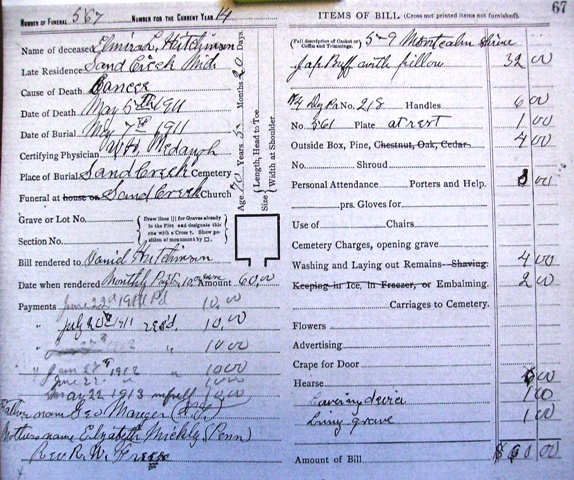 67
NUMBER OF FUNERAL 567 NUMBER FOR THE CURRENT YEAR 14
Name of deceased Elmirah Hitchinson
Late Residence Sand Creek Mich
Cause of Death Cancer
Date of Death May 5th 1911
Date of Burial May 7th 1911
Certifying Physician
Place of Burial Sand Creek Cemetery
Funeral at house or Sand Creek Church
Age 70 Years 5 Months 20 Days.
Length, Head to Toe
Width at Shoulder
Size
Grave or Lot No.
Section No.
Draw lines [|] for Graves already in the Plot and designate this one with a Cross †. Show position of monument by □.
Bill rendered to David Hutchinson
Date when rendered Monthly Payts. Amount 60.00
Payments June 22d 1911 Pd 10.00
" July 20th 1911 rec'd. 10.00
" " 10 00
" Jan 27th 1912 " 10 00
June 22 " " 10 00
May 22 1913 in full 10,00
Father nam Geo Mauger
Mothers name Elizabeth Mickly (Penn)
Rev R. W.
ITEMS OF BILL. (Cross out printed items not furnished).
(Full description of Casket or Coffin and Trimmings. 5-9 Montcalm
Buff with pillow 32 00
No. 218 Handles 6 00
No. 561 Plate at rest 1 00
Outside Box, Pine, Chestnut, Oak, Cedar. 4 00
No. Shroud
Personal Attendance Porters and Help. 00
prs. Gloves for
Use of Chairs
Cemetery Charges, opening grave
Washing and Laying out Remains—Shaving. 4 00
Keeping in Ice, In Freezer, or Embalming. 2 00
Carriages to Cemetery.
Flowers
Advertising
Crape for Door
Hearse 00
Lowering device 1 00
Lining grave 1 00
Amount of Bill $60 00